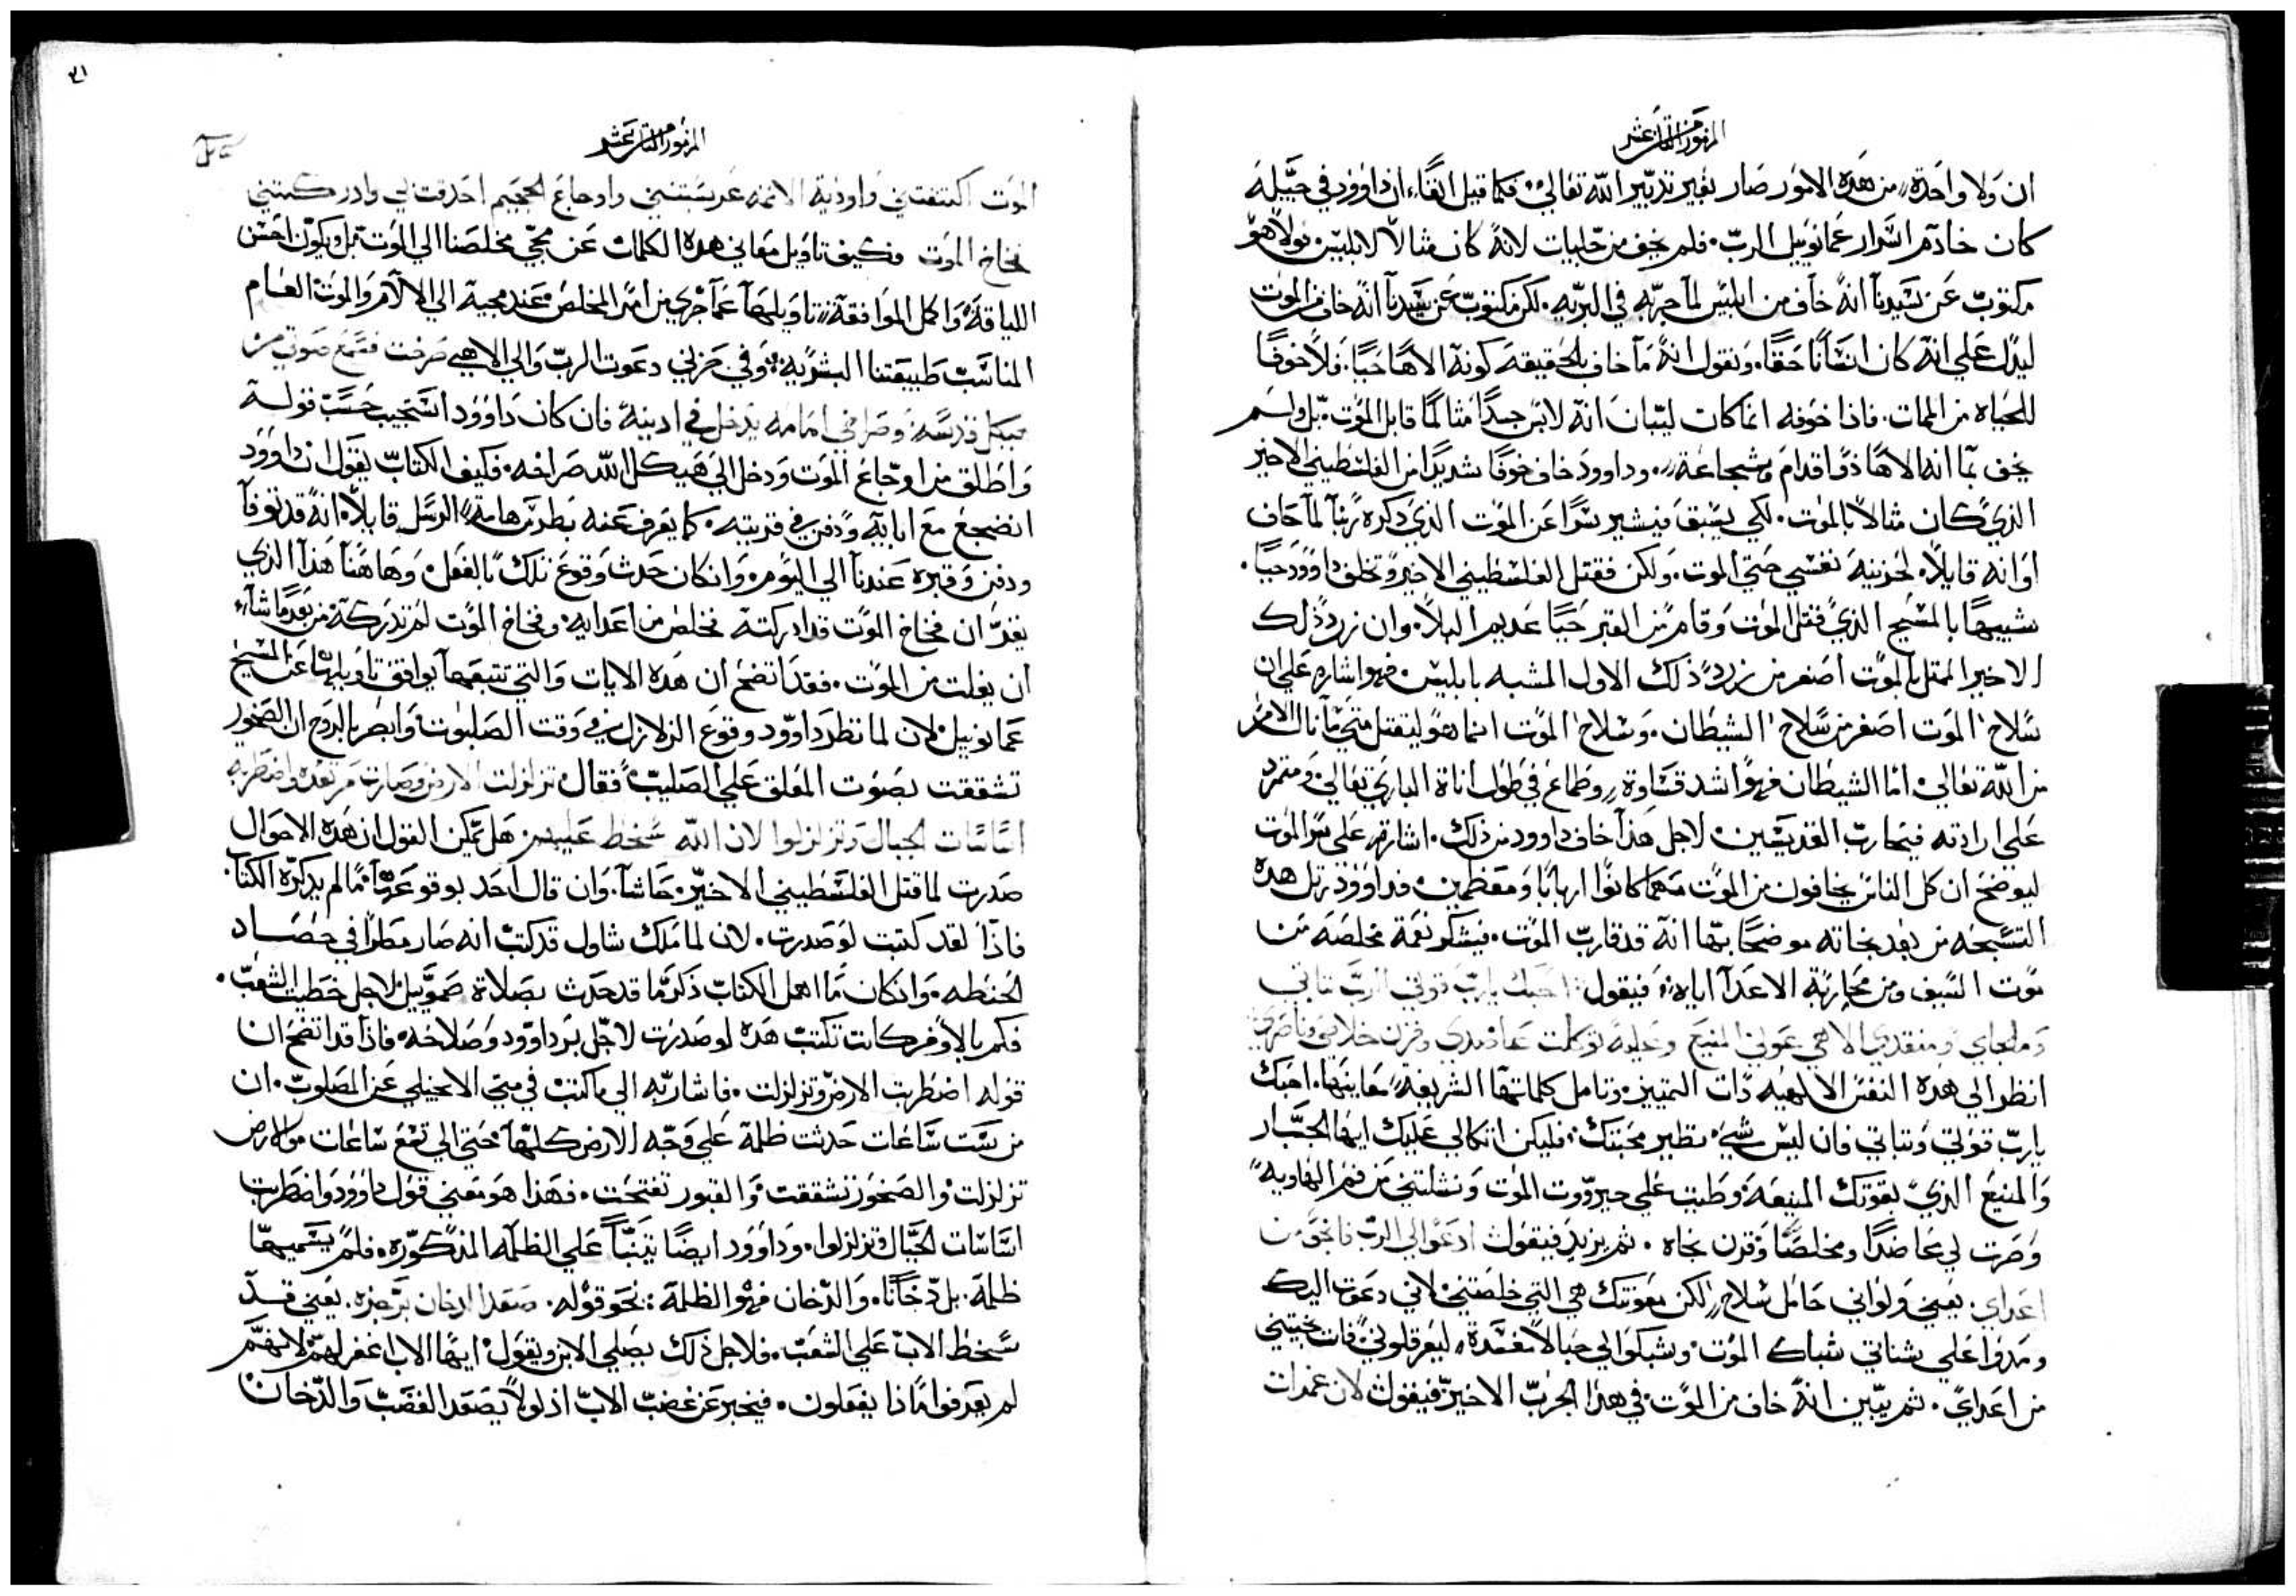 المزمور الثامن عشر
ان ولا واحدة من هذه الامور صار بغير تدبير الله تعالي. فكما قيل انفًا، ان داوود في حَيله
كان خادم اسرار عمانوييل الرب. فلم يخف من جليات لانه كان مثالاً لابليس. ولا هو
مكتوب عن سيدنا انه خاف من ابليس لما جربه في البريه. لكن مكتوب عن سيدنا انه خاف من الموت
ليدل علي انه كان انسانا حقًا. ونقول انه ما خاف بالحقيقه كونه الاهًا حيًا. فلا خوفًا
للحياه من الممات. فاذا خوفه انما كان ليبان انه لابس جسدًا مثالمًا قابل الموت. بل ولم
يخف بما انه الاهًا ذو اقدام وشجاعة. وداوود خاف خوفًا شديدًا من الفلسطيني الاخير
الذي كان مثالاً بالموت. لكي يسبق فيشير سرًا عن الموت الذي ذكره ربنا لما خاف
اوانه قايلاً، لحزينه نفسي حتي الموت. ولكن فقتل الفلسطيني الاخير وتخلف داوود حيًا.
شبيهًا بالمسيح الذي قتل الموت وقام من القبر حيًا عديم البلا. وان زرد ذلك
الاخير الممثل بالموت اصغر من زرد ذلك الاول المشبه بابليس. فهو اشاره علي ان
سلاح الموت اصغر من سلاح الشيطان. وسلاح الموت انما هو ليقتل متي ما نال الامر
من الله تعالي. اما الشيطان فهو اشد قساوة، وطماع في طول اناة الباري تعالي ومتمرد
علي ارادته فيحارب القديسين. لاجل هذا خاف داوود من ذلك. اشارة علي سر الموت
ليوضح ان كل الناس يخافون من الموت مهما كانوا ارهابًا ومعظمين. فداوود رتل هذه
التسبحه من بعد نجاته موضحًا بها انه قد قارب الموت. فيشكر نعمة مخلصه من
موت السيف ومن محاربة الاعدآ اياه، فيقول احبك يارب قوتي الرب تباتي
وملجاي ومنقذي الاهي عوني المنيع وعليه توكلت عاضدي وقرن خلاصي وناصري
انظر الي هذه النفس الالهيه ذات التمييز. وتامل كلماتها الشريفة، معاينها. احبك
يارب قوتي وتباتي فان ليس شيء نظير محبتك. فليكن اتكالي عليك ايها الجبار
والمنيع الذي بقوتك المنيعه وطيت علي جبروت الموت ونشلتني من فم الهاويه
وصرت لي عاضدًا ومخلصًا وقرن نجاه. ثم يزيد فيقول ادعو الي الرب فانجو من
اعداي. يعني ولو اني حامل سلاح، لكن معونتك هي التي خلصتني لاني دعوت اليك
ومدوا علي شناتي شباك الموت. وشبكوا لي حبالاً معقدة، ليعرقلوني فانت نجيتني
من اعداي. ثم يبين انه خاف من الموت في هذا الحرب الاخير فيقول لان غمرات
المزمور الثامن عشر
الموت اكتنفتني واودية الاثمه غرستنني واوجاع الجحيم احدقت بي وادركتني
فخاخ الموت فكيف تاويل معاني هذه الكلمات عن مجي مخلصنا الي الموت بل ويكون احسن
اللياقة واكمل الموافقة، تاويلها عما جري من امر المخلص عند مجيه الي الالام والموت العام
المناسب طبيعتنا البشريه. وفي حزني دعوت الرب والي الاهي صرخت فسمع صوتي من
هيكل قدسه وصراخي امامه يدخل في ادنيه فان كان داوود استجيب حسب قوله
واطلق من اوجاع الموت ودخل الي هيكل الله صراخه. فكيف الكتاب يقول ان داوود
انضجع مع ابايه ودفن في قريته. كما يعرف عنه بطرس هامة الرسل قايلاً، انه قد توفا
ودفن وقبره عندنا الي اليوم. وان كان حدث وقوع تلك بالفعل. وها هنا هذا الذي
يغد ان فخاخ الموت قد ادركته تخلص من اعدايه. وفخاخ الموت لم تدركه من بعد ما شآء
ان يفلت من الموت. فقد اتضح ان هذه الايات والتي تتبعها يوافق تاويلها عن المسيح
عمانوييل. لان لما نظر داوود وقوع الزلازل في وقت الصلبوت وابصر بالروح ان الصخور
تشققت بصوت المعلق علي الصليب فقال تزلزلت الارض وصارت مرتعده واضطربه
اساسات الجبال وتزلزلوا لان الله سخط عليهم هل يمكن القول ان هذه الاحوال
صدرت لما قتل الفلسطيني الاخير. حاشا. وان قال احد بوقوعها. ما لم يذكره الكتاب.
فاذًا لقد كتبت لو صدرت. لان لما ملك شاول قد كتب انه صار مطرًا في حصاد
الحنطه. وان كان ما اهمل الكتاب ذكر ما قد حدث بصلاة صموييل لاجل خطيت الشعب.
فكم بالاوفر كانت تكتب هذه لو صدرت لاجل بر داوود وصلاحه. فاذًا قد اتضح ان
قوله اضطربت الارض وتزلزلت. فاشار به الي ما كتب في متي الانجيلي عن المصلوب. ان
من ست ساعات حدثت ظلمة علي وجه الارض كلها حتي الي تسع ساعات والارض
تزلزلت والصخور تشققت والقبور تفتحت. فهذا هو معني قول داوود واضطربت
اساسات الجبال وتزلزلوا. وداوود ايضًا تنبأ علي الظلمه المذكوره. فلم يسميها
ظلمة. بل دخانًا. والدخان فهو الظلمة: نحو قوله. صعد الدخان برجزه. يعني قد
سخط الاب علي الشعب. فلاجل ذلك يصلي الابن ويقول ايها الاب اغفر لهم لانهم
لم يعرفوا ماذا يفعلون. فيخبر عن غضب الاب اذ لولا يصعد الغضب والدخان